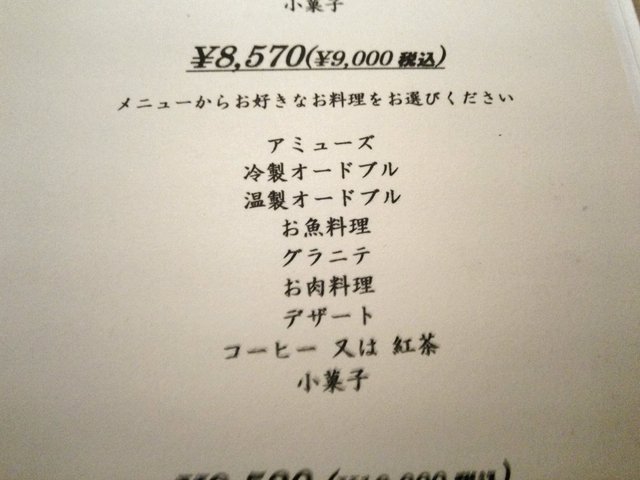 小菓子
¥8,570(¥9,000 税込)
メニューからお好きなお料理をお選びください
アミューズ
冷製オードブル
温製オードブル
お魚料理
グラニテ
お肉料理
デザート
コーヒー 又は 紅茶
小菓子